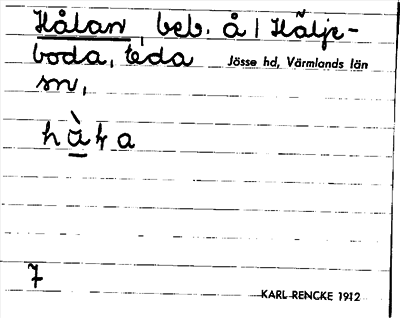 Hålan, beb. å | Hälje-
boda, Eda
Jösse hd, Värmlands län
sn,
7
KARL RENCKE 1912